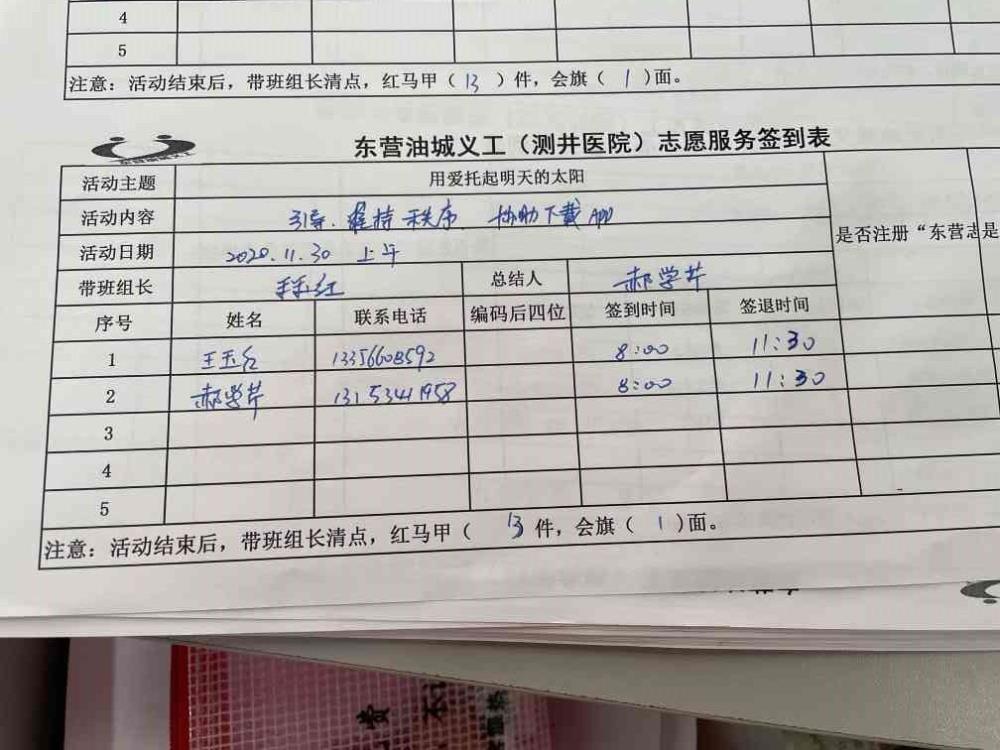 4
5
注意：活动结束后，带班组长清点，红马甲（ 13 ）件，会旗（ 1 ）面。
东营油城义工（测井医院）志愿服务签到表
活动主题 用爱托起明天的太阳
活动内容 引导、维持秩序、协助下载APP
活动日期 2020.11.30 上午 是否注册“东营志 是
带班组长 总结人 郝学芹
序号 姓名 联系电话 编码后四位 签到时间 签退时间
1 13356608592 8:00 11:30
2 郝学芹 13153441958 8:00 11:30
3
4
5
注意：活动结束后，带班组长清点，红马甲（ 13 件，会旗（ 1 ）面。
费